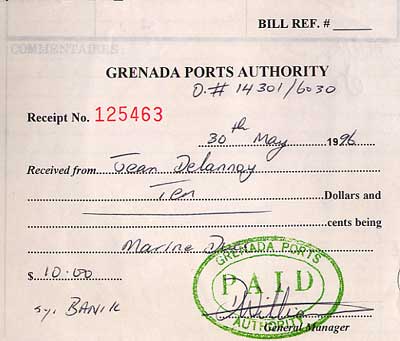 BILL REF. #
COMMENTAIRES:
GRENADA PORTS AUTHORITY
O.# 14301/6030
Receipt No. 125463
30th May 1996
Received from Jean Delannoy
Ten Dollars and
cents being
Marine
$ 10.00
GRENADA PORTS
PAID
AUTHORITY
General Manager